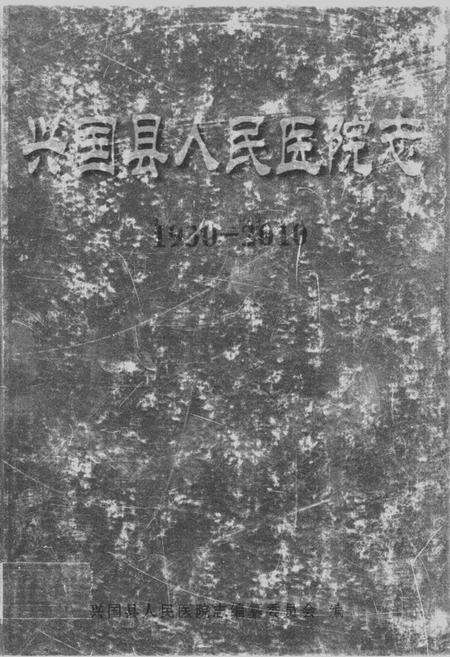 兴国县人民医院志
1930—2010
兴国县人民医院志编纂委员会 编